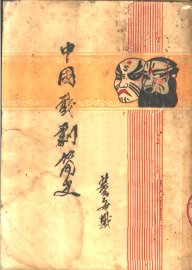 中國戲劇簡史
董每戡